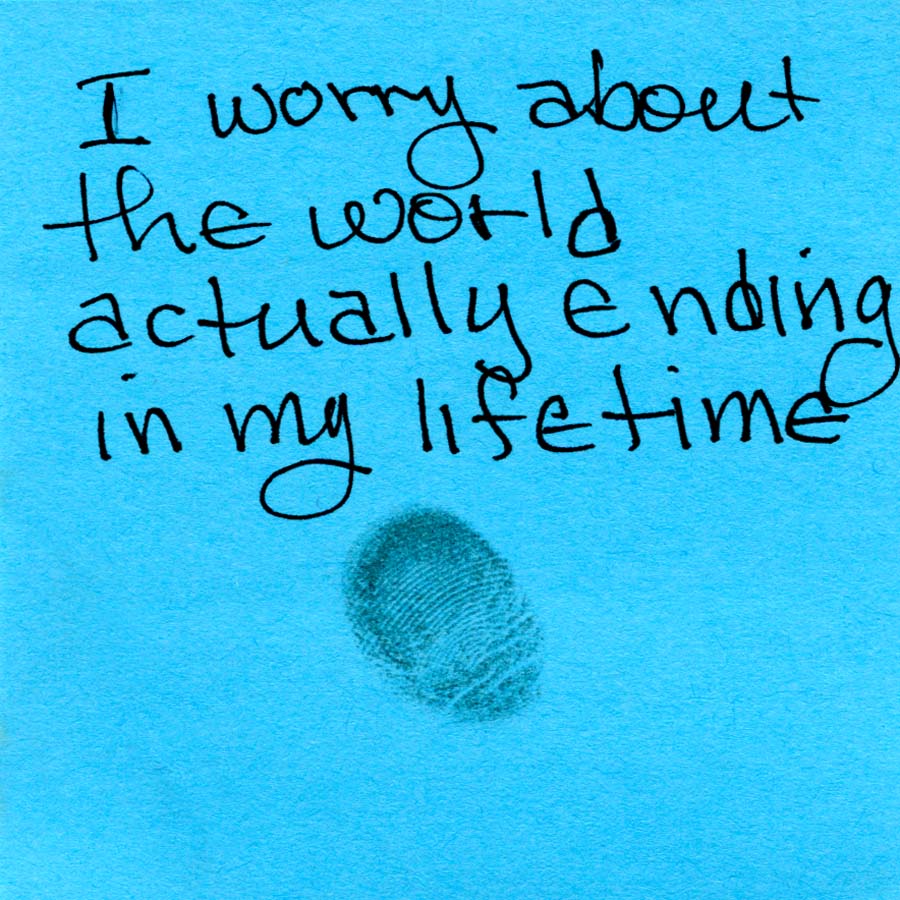 I worry about
the world
actually ending
in my lifetime